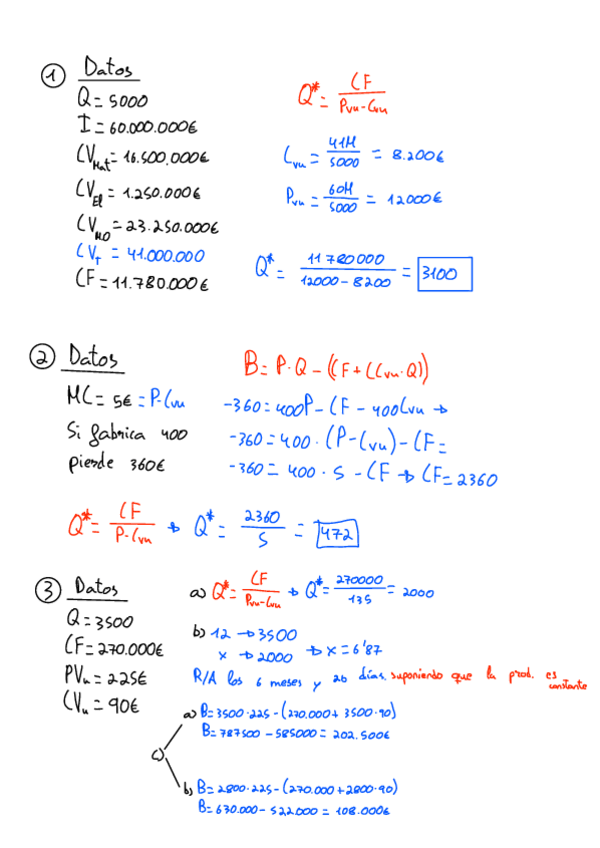 ① Datos
Q = 5000
I = 60.000.000€
CVMat = 16.500.000€
CVEl = 1.250.000€
CVMO = 23.250.000€
CVT = 41.000.000
CF = 11.780.000€
Q* = CF / Pvu - Cvu
Cvu = 41M / 5000 = 8.200€
Pvu = 60M / 5000 = 12000€
Q* = 11780000 / 12000 - 8200 = 3100
② Datos
MC = 5€ = P-Cvu
Si fabrica 400
pierde 360€
B = P·Q - (CF + (Cvu·Q))
-360 = 400P - CF - 400Cvu →
-360 = 400·(P-Cvu) - CF =
-360 = 400·5 - CF → CF = 2360
Q* = CF / P-Cvu → Q* = 2360 / 5 = 472
③ Datos
Q = 3500
CF = 270.000€
PVu = 225€
CVu = 90€
a) Q* = CF / Pvu-Cvu → Q* = 270000 / 135 = 2000
b) 12 → 3500
x → 2000 → x = 6'87
R/A los 6 meses y 26 días. suponiendo que la prod. es constante
c)
a) B = 3500·225 - (270.000 + 3500·90)
B = 787500 - 585000 = 202.500€
b) B = 2800·225 - (270.000 + 2800·90)
B = 630.000 - 522.000 = 108.000€